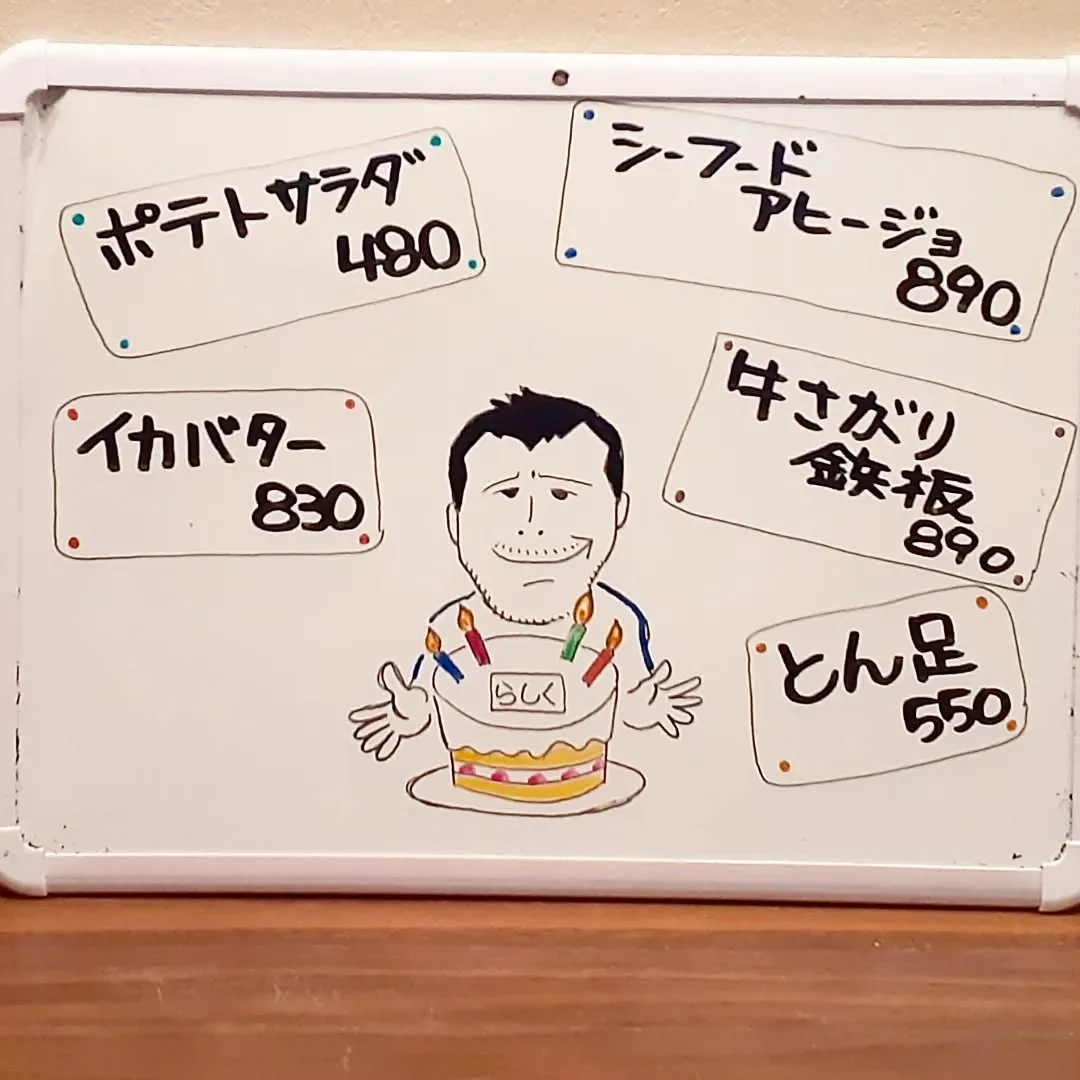 ポテトサラダ
480
シーフード
アヒージョ
890
イカバター
830
牛さがり
鉄板
890
とん足
550
らしく